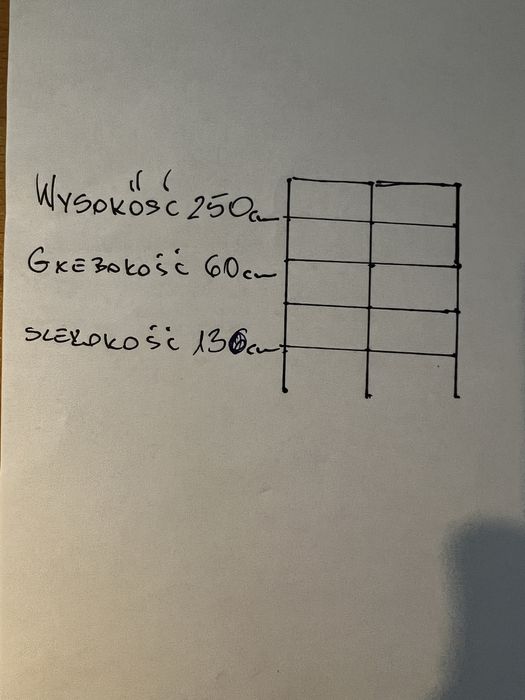 WYSOKOŚĆ 250cm
GŁĘBOKOŚĆ 60cm
SZEROKOŚĆ 130cm